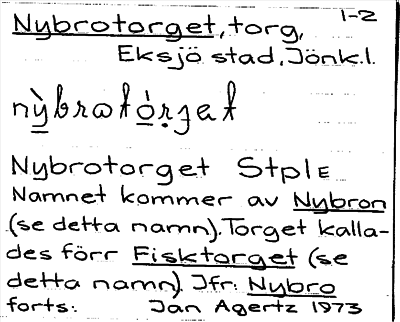 1-2
Nybrotorget, torg,
Eksjö stad, Jönk.l.
nỳbrωtó̱rgat
Nybrotorget StplE
Namnet kommer av Nybron
(se detta namn). Torget kalla-
des förr Fisktorget (se
detta namn). Jfr: Nybro
forts. Jan Agertz 1973